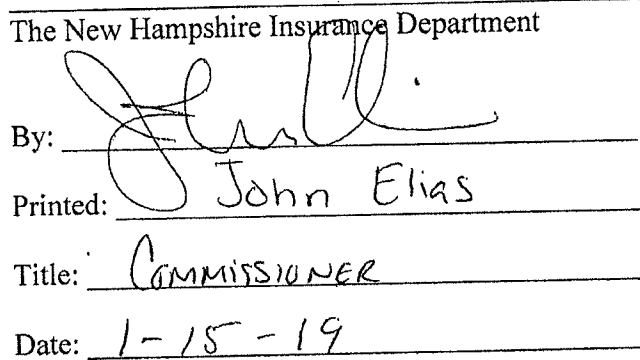 The New Hampshire Insurance Department
By:
Printed: John Elias
Title: COMMISSIONER
Date: 1-15-19